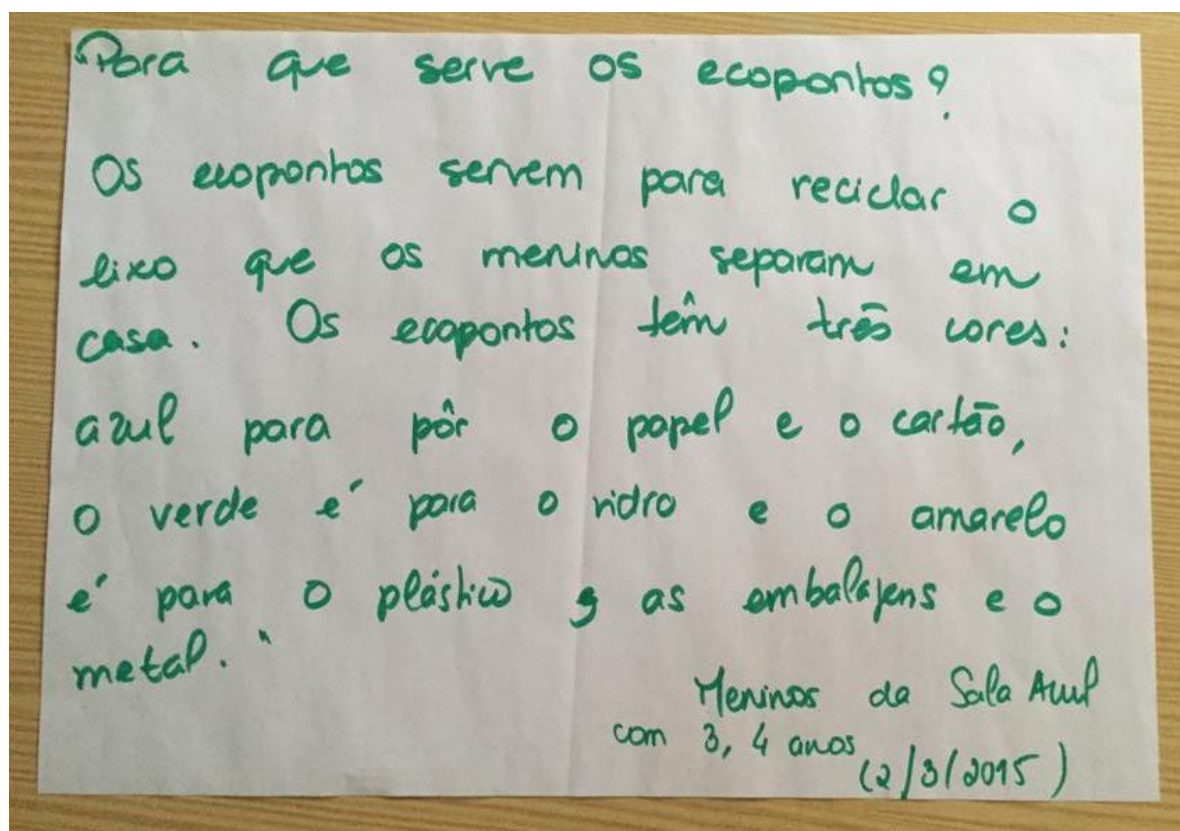 "Para que serve os ecopontos?
Os ecopontos servem para reciclar o
lixo que os meninos separam em
casa. Os ecopontos têm três cores:
azul para pôr o papel e o cartão,
o verde é para o vidro e o amarelo
é para o plástico, as embalajens e o
metal."
Meninos da Sala Azul
com 3, 4 anos
(2/3/2015)